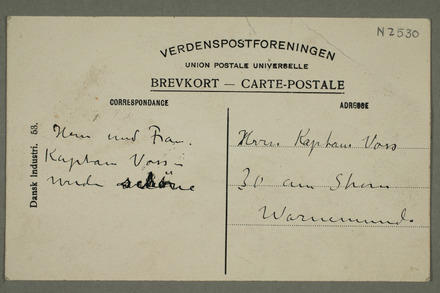 N2530
VERDENSPOSTFORENINGEN
UNION POSTALE UNIVERSELLE
BREVKORT — CARTE-POSTALE
CORRESPONDANCE
ADRESSE
Dansk Industri. 53.
Herrn und Frau.
Kapitain Voss
schöne
Herrn Kapitain Voss
30 am Strom
Warnemünde